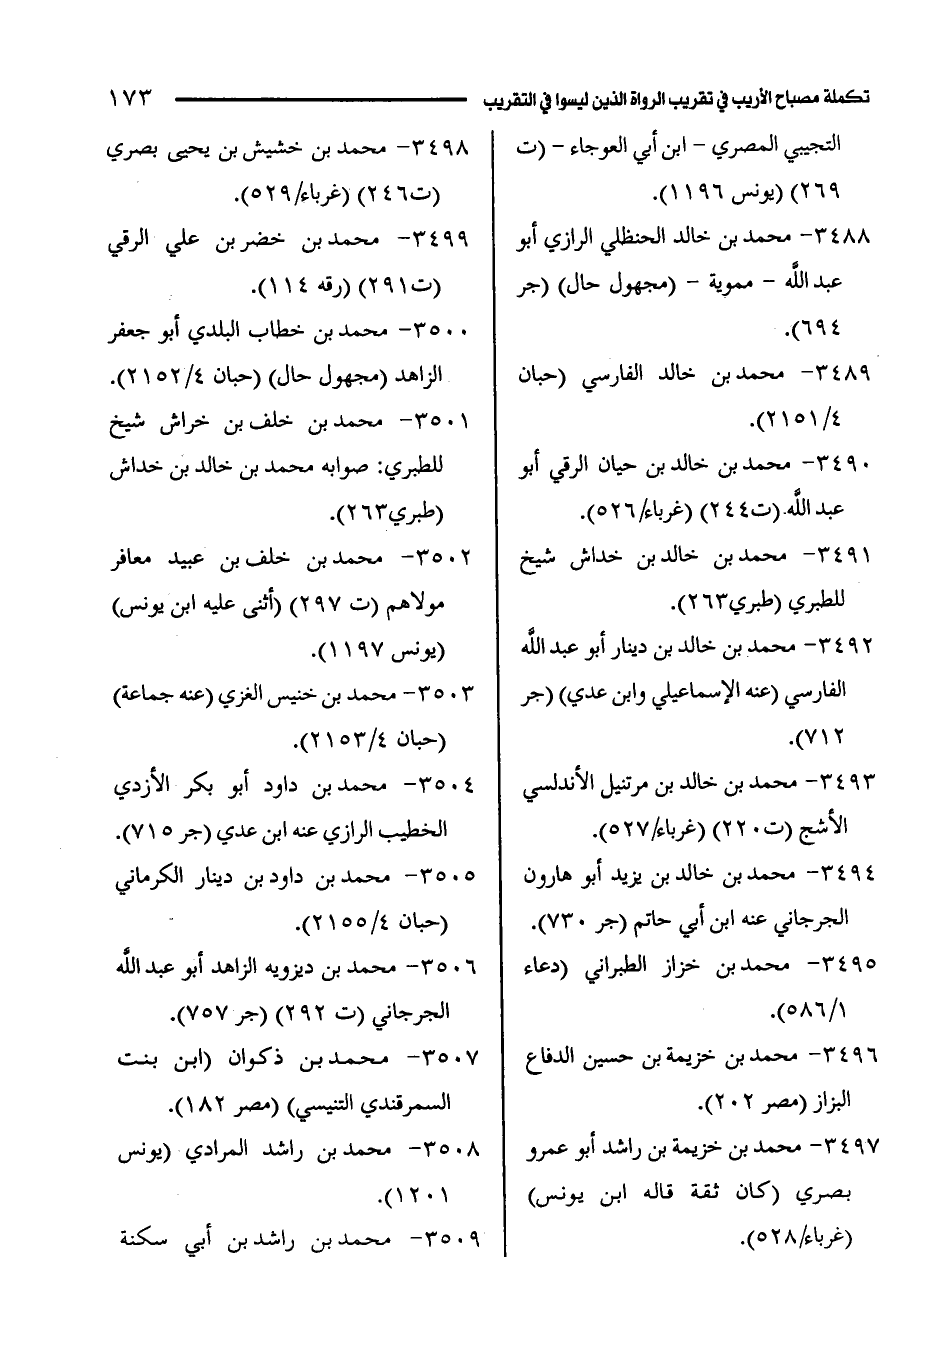 تكملة مصباح الأريب في تقريب الرواة الذين ليسوا في التقريب ١٧٣
التجيبي المصري - ابن أبي العوجاء - (ت
٢٦٩) (يونس ١١٩٦).
٣٤٨٨- محمد بن خالد الحنظلي الرازي أبو
عبد اللَّه - مموية - (مجهول حال) (جر
٦٩٤).
٣٤٨٩- محمد بن خالد الفارسي (حبان
٢١٥١/٤).
٣٤٩٠- محمد بن خالد بن حيان الرقي أبو
عبد اللَّه (ت٢٤٤) (غرباء/٥٢٦).
٣٤٩١- محمد بن خالد بن خداش شيخ
للطبري (طبري٢٦٣).
٣٤٩٢- محمد بن خالد بن دينار أبو عبد اللَّه
الفارسي (عنه الإسماعيلي وابن عدي) (جر
٧١٢).
٣٤٩٣- محمد بن خالد بن مرتنيل الأندلسي
الأشج (ت٢٢٠) (غرباء/٥٢٧).
٣٤٩٤- محمد بن خالد بن يزيد أبو هارون
الجرجاني عنه ابن أبي حاتم (جر ٧٣٠).
٣٤٩٥- محمد بن خزاز الطبراني (دعاء
٥٨٦/١).
٣٤٩٦- محمد بن خزيمة بن حسين الدفاع
البزاز (مصر ٢٠٢).
٣٤٩٧- محمد بن خزيمة بن راشد أبو عمرو
بصري (كان ثقة قاله ابن يونس)
(غرباء/٥٢٨).
٣٤٩٨- محمد بن خشيش بن يحيى بصري
(ت٢٤٦) (غرباء/٥٢٩).
٣٤٩٩- محمد بن خضر بن علي الرقي
(ت٢٩١) (رقه ١١٤).
٣٥٠٠- محمد بن خطاب البلدي أبو جعفر
الزاهد (مجهول حال) (حبان ٢١٥٢/٤).
٣٥٠١- محمد بن خلف بن خراش شيخ
للطبري: صوابه محمد بن خالد بن خداش
(طبري٢٦٣).
٣٥٠٢- محمد بن خلف بن عبيد معافر
مولاهم (ت ٢٩٧) (أثنى عليه ابن يونس)
(يونس ١١٩٧).
٣٥٠٣- محمد بن خنيس الغزي (عنه جماعة)
(حبان ٢١٥٣/٤).
٣٥٠٤- محمد بن داود أبو بكر الأزدي
الخطيب الرازي عنه ابن عدي (جر ٧١٥).
٣٥٠٥- محمد بن داود بن دينار الكرماني
(حبان ٢١٥٥/٤).
٣٥٠٦- محمد بن ديزويه الزاهد أبو عبد اللَّه
الجرجاني (ت ٢٩٢) (جر ٧٥٧).
٣٥٠٧- محمد بن ذكوان (ابن بنت
السمرقندي التنيسي) (مصر ١٨٢).
٣٥٠٨- محمد بن راشد المرادي (يونس
١٢٠١).
٣٥٠٩- محمد بن راشد بن أبي سكنة